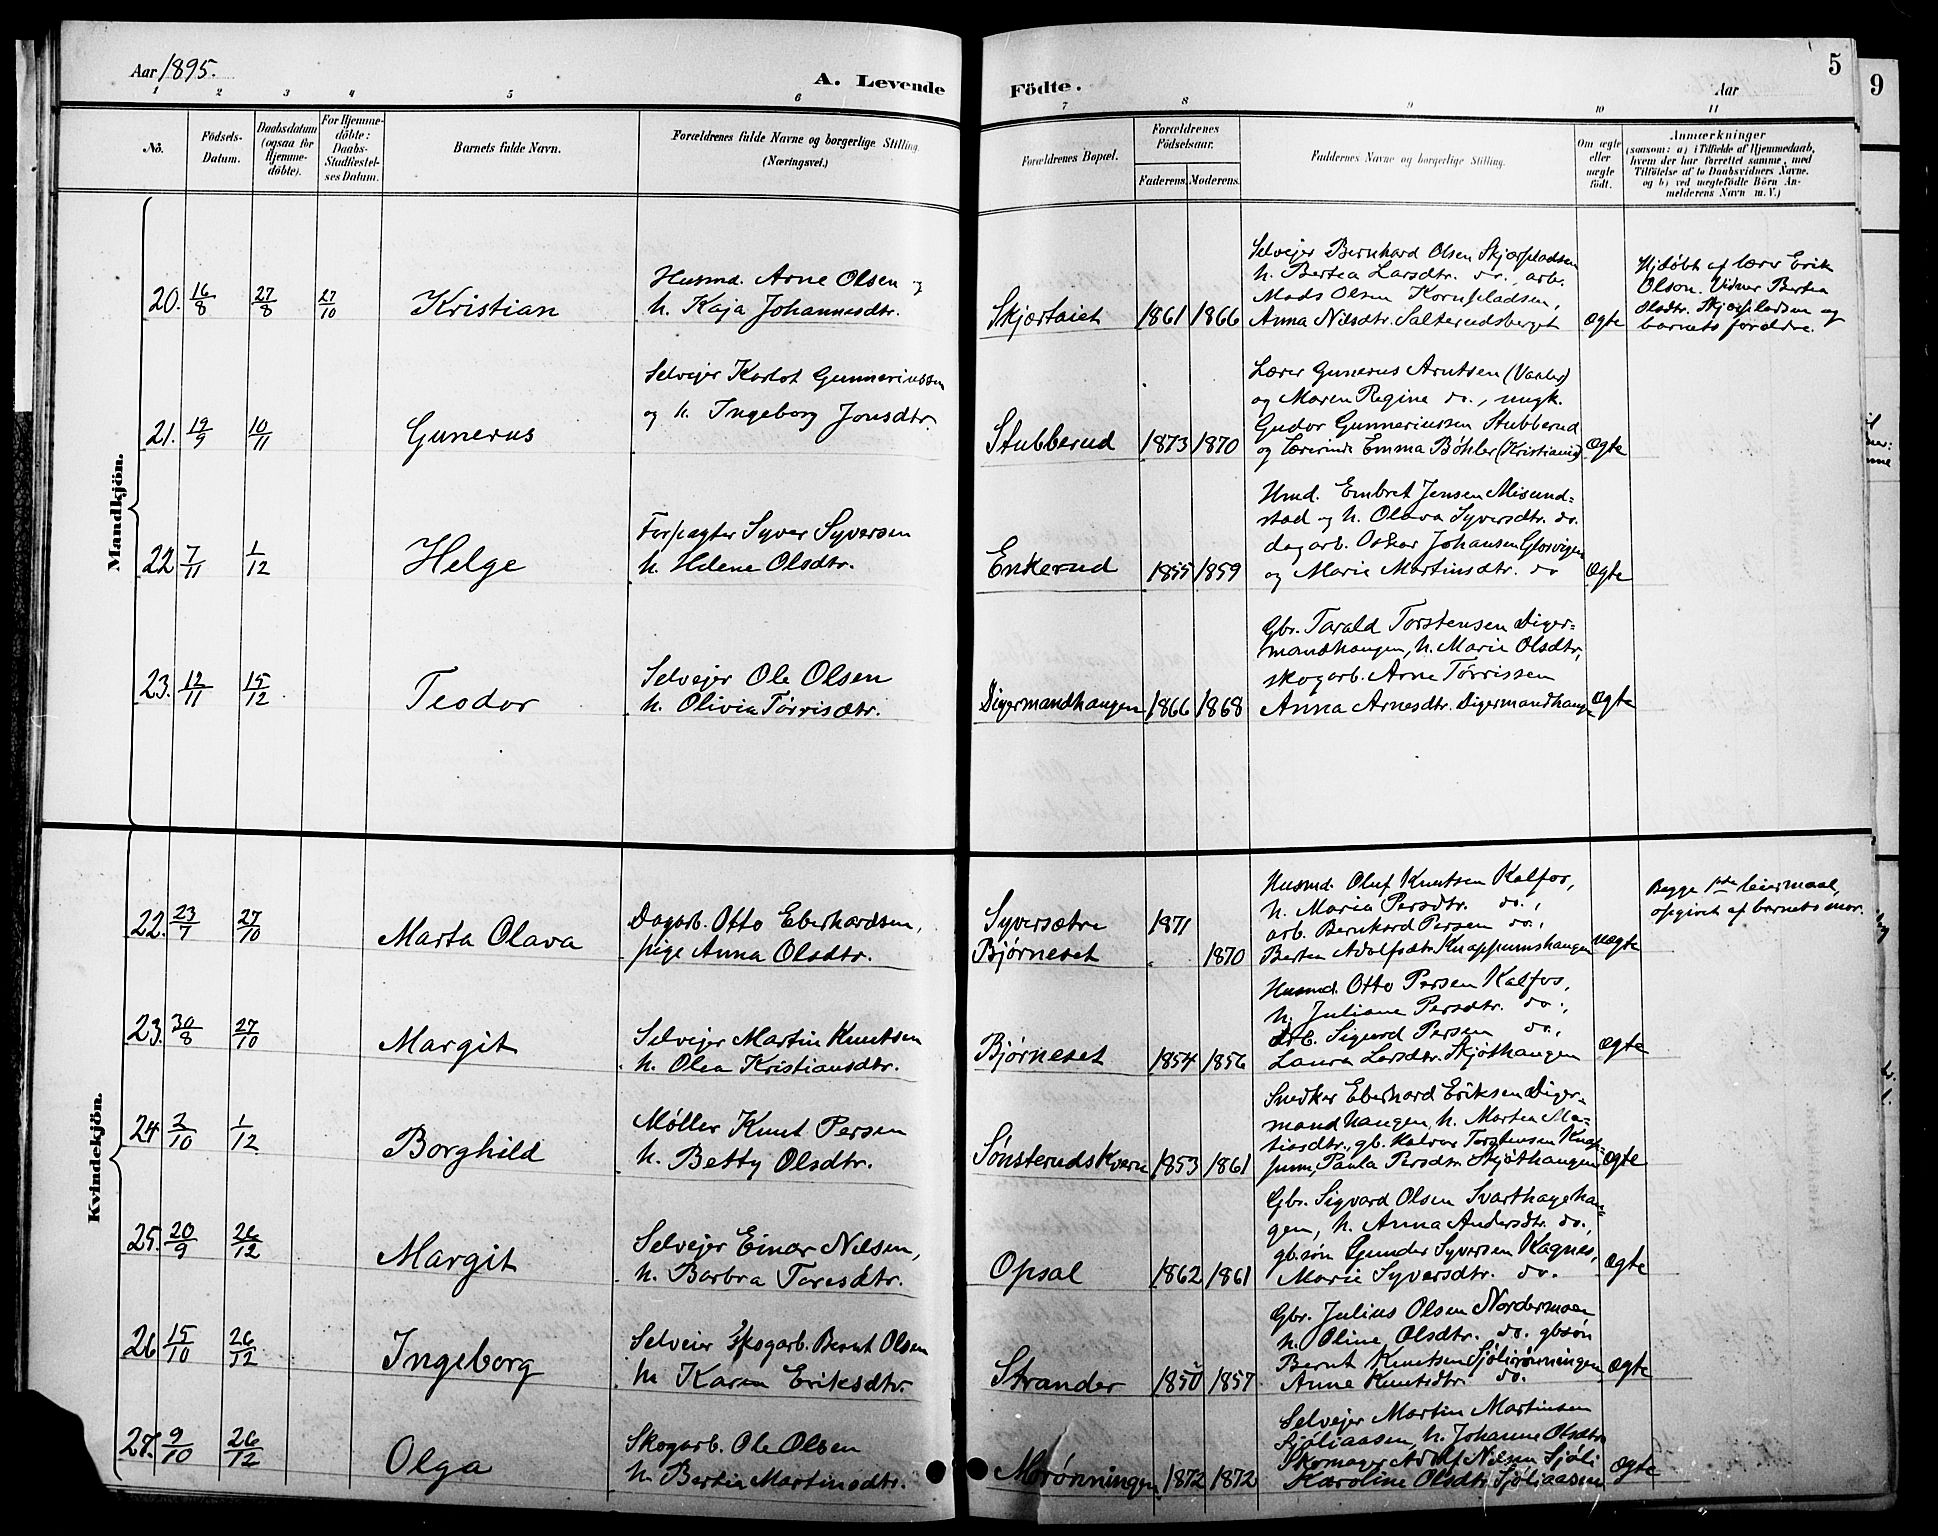 Aar 1895.
A. Levende Födte.
Aar
5
9
1 2 3 4 5 6 7 8 9 10 11
No.
Födsels-
Datum.
Daabsdatum
(ogsaa for
Hjemme-
döbte).
For Hjemme-
döbte:
Daabs-
Stadfæstel-
ses Datum.
Barnets fulde Navn.
Forældrenes fulde Navne og borgerlige Stilling
(Næringsvei.)
Forældrenes Bopæl.
Forældrenes
Födselsaar.
Faderens. Moderens.
Faddernes Navne og borgerlige Stilling.
Om ægte
eller
uægte
födt.
Anmærkninger
(saasom: a) i Tilfælde af Hjemmedaab,
hvem der har forrettet samme, med
Tilföielse af to Daabsvidners Navne.
og b) ved uægtefödte Börn An-
melderens Navn m. V.)
Mandkjön.
20. 16/8 27/8 27/10 Kristian
Husmd. Arne Olsen og
h. Kaja Johannesdtr.
Skjærtaiet 1861 1866
Selvejer Bernhard Olsen Skjæpladsen
h. Bertea Larsdtr. do., arb.
Mads Olsen Kornpladsen,
Anna Nilsdtr. Salterudsberget
Ægte
Hjdøbt af lærer Erik
Olson. Vidner Bertea
Olsdtr. Skjæpladsen og
barnets forældre.
21. 19/9 10/11 Gunerus
Selvejer Karlot Gunneriussen
og h. Ingeborg Jonsdtr.
Stubberud 1873 1870
Lærer Gunerus Arntsen (Vaaler)
og Maren Regine do., ungk.
Gudor Gunneriussen Stubberud
og Lærerinde Emma Bøhler (Kristiania)
Ægte
22 7/11 1/12 Helge
Forpagter Syver Syversen
h. Helene Olsdtr.
Enkerud 1855 1859
Hmd. Embret Jensen Misund-
stad og h. Olava Syversdtr. do.
dagarb. Oskar Johansen Glosvigen
og Marie Martinsdtr. do
Ægte
23. 12/11 15/12 Teodor
Selvejer Ole Olsen
h. Olivia Tørrisdtr.
Digermandhaugen 1866 1868
Gbr. Tarald Torstensen Diger-
mandhaugen, h. Marie Olsdtr,
skogarb. Arne Tørrissen
Anna Arnesdtr. Digermandhaug
Ægte
Kvindekjön.
22. 23/7 27/10 Marta Olava
Dagarb. Otto Eberhardsen,
pige Anna Olsdtr.
Syversætre 1871
Bjørneset 1870
Husmd. Oluf Knutsen Kalfos,
h. Maria Persdtr. do.,
arb. Bernhard Persen do.,
Bertea Adolfsdtr. Knappumshaugen
uægte
Begge 1ste leiermaal,
opgivet af barnets mor.
23. 30/8 27/10 Margit
Selvejer Martin Knutsen
h. Olea Kristiansdtr.
Bjørneset 1854 1856
Husmd. Otto Persen Kalfos,
h. Juliane Persdtr. do.,
arb. Sigurd Persen do.,
Laura Larsdtr. Skjøthaugen
Ægte
24 2/10 1/12 Borghild
Møller Knut Persen
h. Betty Olsdtr.
Sønsteruds Kvern 1853 1861
Snedker Eberhard Eriksen Diger-
mandhaugen, h. Martea Ma-
tisdtr., gb. Halvor Torstensen Knap-
pum, Paula Persdtr. Skjøthaugen
Ægte
25. 20/9 26/12 Margit
Selvejer Einar Nilsen,
h. Barbra Toresdtr.
Opsal 1862 1861
Gbr. Sigvard Olsen Svarthagehau-
gen, h. Anna Andersdtr. do.,
gb.søn Gunder Syversen Kagnes,
Marie Syversdtr. do.
Ægte
26 15/10 26/12 Ingeborg
Selveier Skogarb. Bernt Olsen
h. Karen Eriksdtr.
Strander 1850 1857
Gbr. Julius Olsen Nordermoen
h. Oline Olsdtr. do. gbsøn
Bernt Knutsen Sjölirønningen
Anne Knutsdtr. do.
Ægte
27. 9/10 26/12 Olga
Skogarb. Ole Olsen
h. Bertin Martinsdtr.
Morønningen 1872 1872
Selvejer Martin Martinsen
Sjøliaasen, h. Johanne Olsdtr.
Skomager Adolf Nilsen Sjøli
Karoline Olsdtr. Sjøliaasen
Ægte